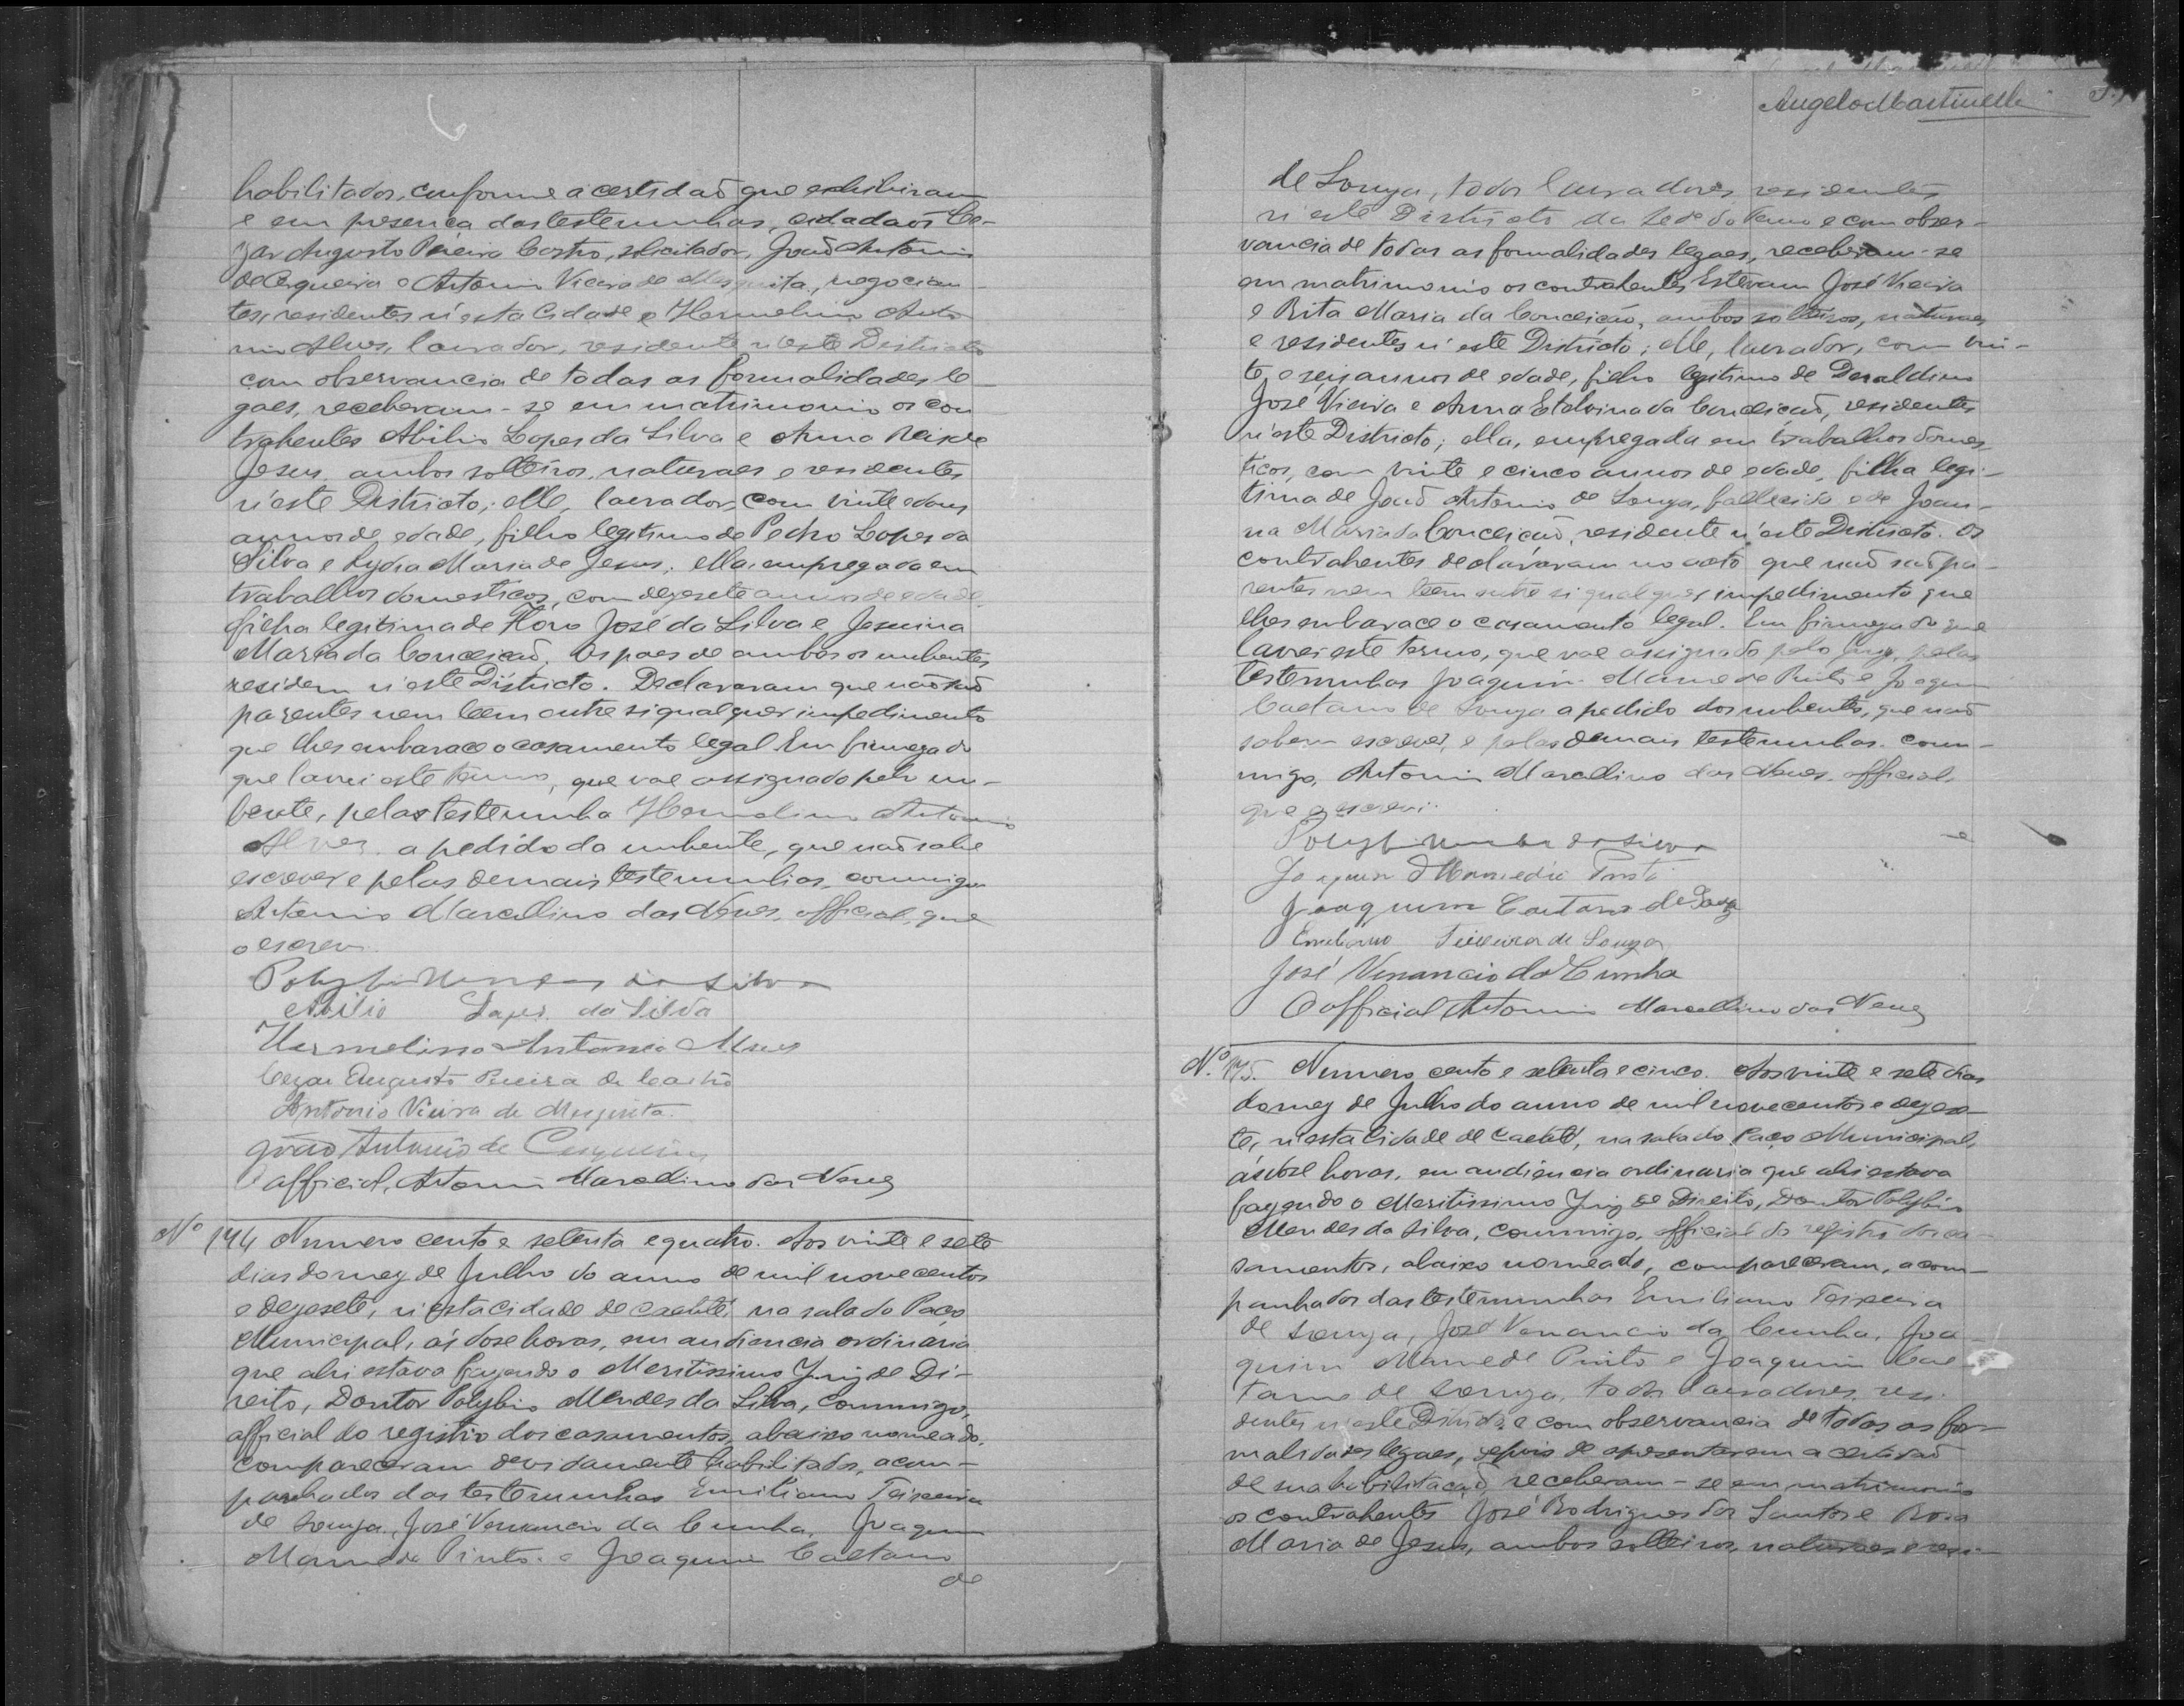 habilitados, conforme a certidaõ que exhibiram
e em presença das testemunhas, cidadaõs Ce-
zar Augusto Pereira Castro, solicitador, Joaõ Antonio
de Cerqueira e Antonio Vieira de Mesquita, negocian-
tes, residentes n'esta Cidade e Hermelino Anto
nio Alves, lavrador, residente n'este Districto
com observancia de todas as formalidades le
gaes, receberam-se em matrimonio os con
trahentes Abilio Lopes da Silva e Anna de
Jesus, ambos solteiros, naturaes e residentes
n'este Districto; elle, lavrador, com vinte e dous
annos de edade, filho legitimo de Pedro Lopes da
Silva e Lydia Maria de Jesus; ella, empregada em
trabalhos domesticos, com dezesete annos de edade,
filha legitima de José da Silva e Jesuina
Maria da Conceicaõ. Os paes de ambos os nubentes
residem n'este Districto. Declararam que não saõ
parentes nem teem entre si qualquer impedimento
que lhes embarace o casamento legal. Em firmeza do
que lavrei este termo, que vae assignado pelo nu-
bente, pelas testemunha Hermelino Antonio
Alves, a pedido da nubente, que naõ sabe
escrever e pelas demais testemunhas, commigo
Antonio Marcellino das Neves, official, que
o escrevi.
Polybio Mendes da Silva
Abilio Lopes da Silva
Hermelino Antonio Alves
Cezar Augusto Pereira de Castro
Antonio Vieira de Mesquita.
João Antonio de Cerqueira
O official, Antonio Marcellino das Neves
Nº 174 Numero cento e setenta e quatro. Aos vinte e sete
dias do mez de Julho do anno de mil novecentos
e dezesete, n'esta cidade de Caeteté, na sala do Paço
Municipal, ás dose horas, em audiencia ordinaria
que ahi estava fazendo o Meritissimo Juiz de Di-
reito, Doutor Polybio Mendes da Silva, commigo,
official do registro dos casamentos, abaixo nomeado,
compareceram devidamente habilitados, acom-
panhados das testemunhas Emiliano Teixeira
de Souza, José Venancio da Cunha, Joaquim
Mamede Pinto e Joaquim Caetano
de
Angelo Martinelli
de Souza, todos lavradores, residentes
n'este Districto da séde do Termo e com obser-
vancia de todas as formalidades legaes, receberam-se
em matrimonio os contrahentes Estevam José Vieira
e Rita Maria da Conceição, ambos solteiros, naturaes
e residentes n'este Districto; elle, lavrador, com vin-
te e seis annos de edade, filho legitimo de Deraldino
José Vieira e Anna Etelvina da Conceicaõ, residentes
n'este Districto; ella, empregada em trabalhos domes
ticos, com vinte e cinco annos de edade, filha legi-
tima de Joaõ Antonio de Souza, fallecido e de Joan-
na Maria da Conceicaõ, residente n'este Districto. Os
contrahentes declararam no acto que naõ saõ pa-
rentes nem teem entre si qualquer impedimento que
lhes embarace o casamento legal. Em firmeza do que
lavrei este termo, que vae assignado pelo Juiz, pelas
testemunhas Joaquim Mamede Pinto e Joaquim
Caetano de Souza a pedido dos nubentes, que naõ
sabem escrever, e pelas demais testemunhas, com-
migo, Antonio Marcellino das Neves, official,
que o escrevi.
Polybio Mendes da Silva
Joaquim Mamedio Pinto
Joaquim Caetano de Souza
Emiliano Teixeira de Souza
José Venancio da Cunha
O official Antonio Marcellino das Neves
Nº. 175. Numero cento e setenta e cinco. Aos vinte e sete dias
do mez de Julho do anno de mil novecentos e dezese-
te, n'esta Cidade de Caeteté, na sala do Paço Municipal,
ás dose horas, em audiencia ordinaria que ahi estava
fazendo o Meritissimo Juiz de Direito, Doutor Polybio
Mendes da Silva, commigo, official do registro dos ca-
samentos, abaixo nomeado, compareceram, acom-
panhados das testemunhas Emiliano Teixeira
de Souza, José Venancio da Cunha, Joa-
quim Mamede Pinto e Joaquim Cae
tano de Souza, todos lavradores, resi-
dentes n'este Districto e com observancia de todas as for-
malidades legaes, depois de apresentarem a certidaõ
de sua habilitaçaõ, receberam-se em matrimonio
os contrahentes José Rodrigues dos Santos e Rosa
Maria de Jesus, ambos solteiros, naturaes e resi-